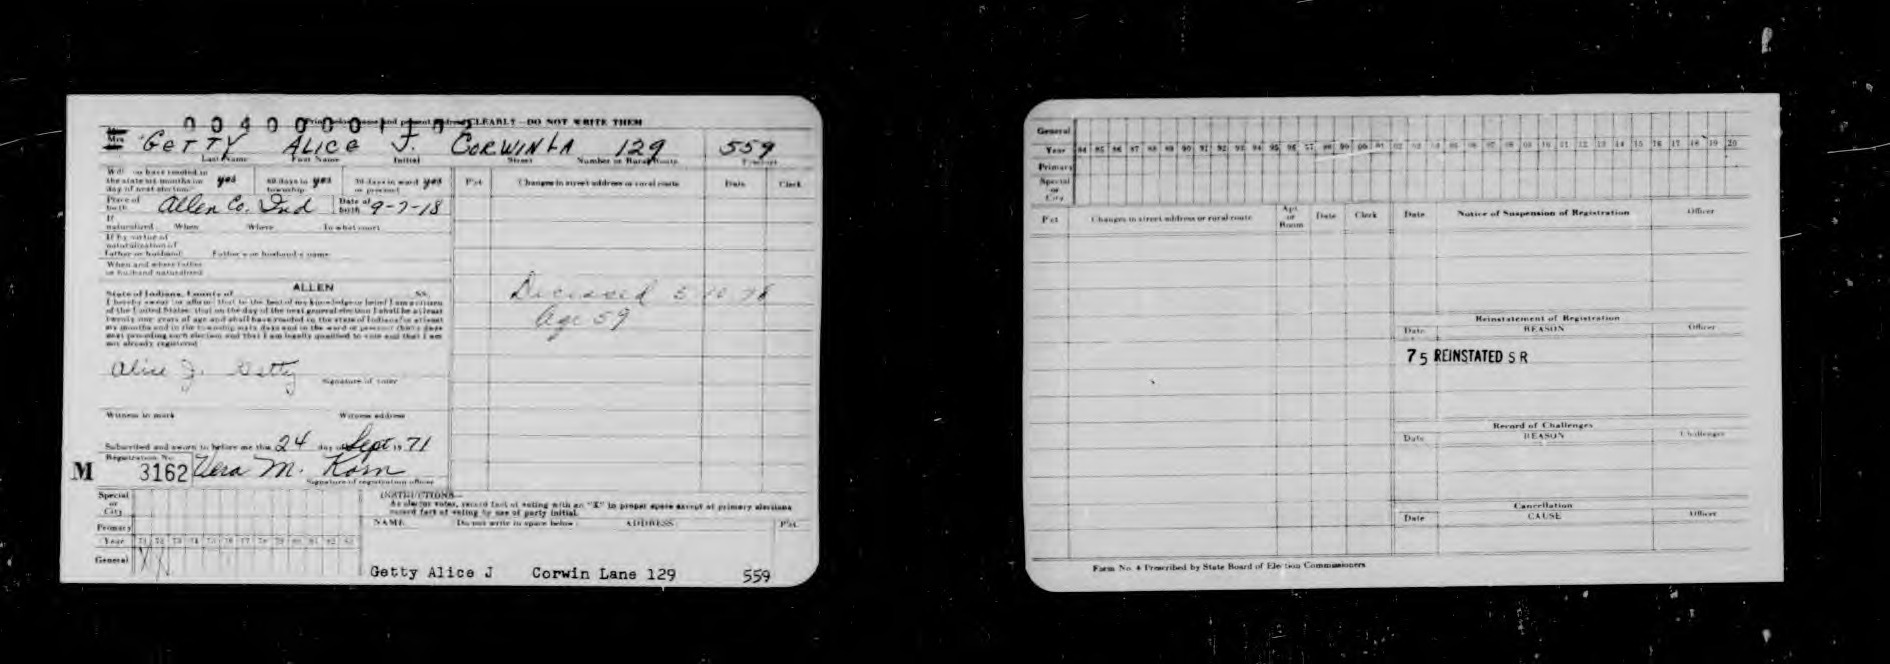 0040000110
Print your name and present address CLEARLY—DO NOT WRITE THEM
Mrs. GETTY ALICE J. CORWIN LA 129 559
Last Name First Name Initial Street Number or Rural Route Precinct
Will you have resided in
the state six months on
day of next election? yes 60 days in township yes 30 days in ward or precinct yes
Place of birth Allen Co. Ind Date of birth 9-7-18
If
naturalized When Where To what court
If by virtue of
naturalization of
Father or husband Father's or husband's name
When and where father
or husband naturalized
State of Indiana, County of ALLEN SS.
I hereby swear (or affirm) that to the best of my knowledge or belief I am a citizen
of the United States; that on the day of the next general election I shall be at least
twenty-one years of age and shall have resided in the state of Indiana for at least
six months and in the township sixty days and in the ward or precinct thirty days
next preceding such election and that I am legally qualified to vote and that I am
not already registered
Alice J. Getty
Signature of voter
Witness to mark Witness address
Subscribed and sworn to before me this 24 day of Sept 1971
Registration No.
M 3162 Vera M. Korn
Signature of registration officer
Pct Changes in street address or rural route Date Clerk
Deceased 5 10 78
Age 59
Special
or
City
Primary
Year 71 72 73 74 75 76 77 78 79 80 81 82 83
General X X
INSTRUCTIONS—
As elector votes, record fact of voting with an "X" in proper space except at primary elections
record fact of voting by use of party initial.
NAME Do not write in space below ADDRESS Pct.
Getty Alice J Corwin Lane 129 559
General
Year 84 85 86 87 88 89 90 91 92 93 94 95 96 97 98 99 00 01 02 03 04 05 06 07 08 09 10 11 12 13 14 15 16 17 18 19 20
Primary
Special
or
City
Pct Changes in street address or rural route Apt. or Room Date Clerk
Date Notice of Suspension of Registration Officer
Reinstatement of Registration
Date REASON Officer
75 REINSTATED S R
Record of Challenges
Date REASON Challenger
Cancellation
Date CAUSE Officer
Form No. 4 Prescribed by State Board of Election Commissioners